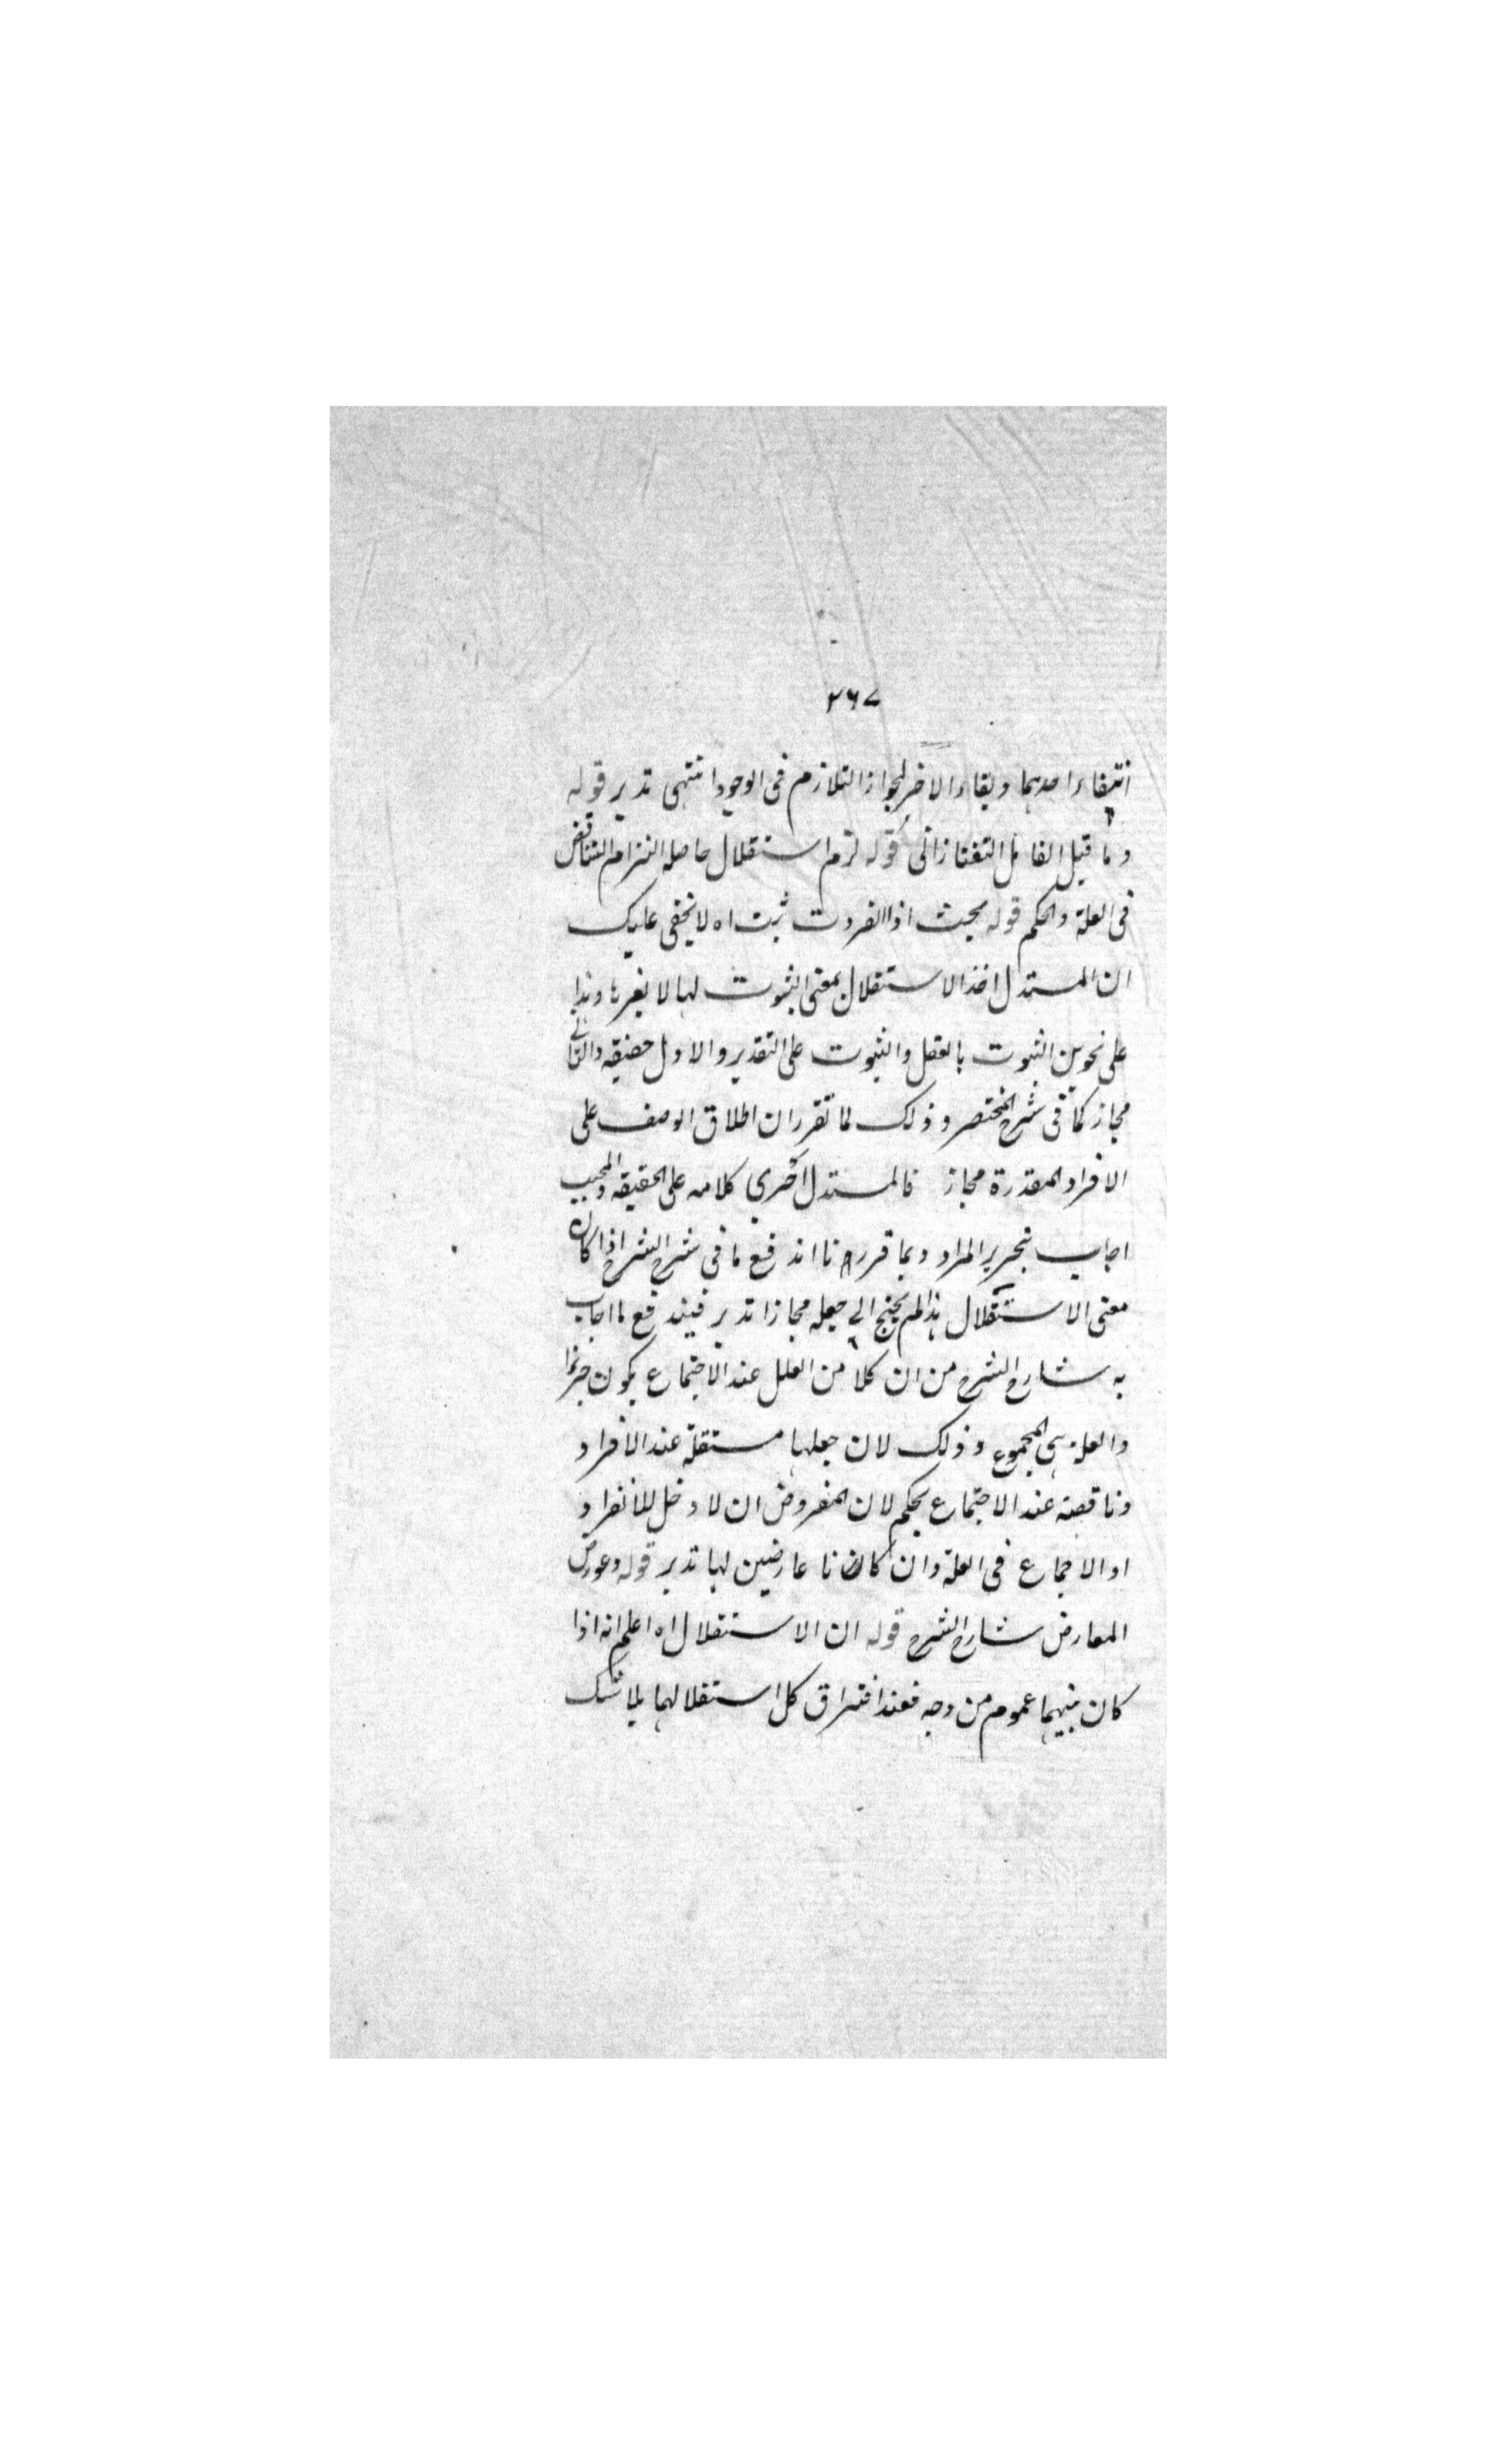 ٢٦٧
انتفاء احدهما وبقاء الاخر لجواز التلازم فى الوجود انتهى تدبر قوله
وما قيل الفاضل التفتازانى قوله لزم استقلال حاصله التزام التناقض
فى العلة والحكم قوله بحيث اذا انفردت ثبت اه لا يخفى عليك
ان المستدل اخذ الاستقلال بمعنى الثبوت لها لا بغيرها وهذا
على نحوين الثبوت بالفعل والثبوت على التقدير والاول حقيقه والثانى
مجاز كما فى شرح المختصر وذلك لما تقرر ان اطلاق الوصف على
الافراد المقدرة مجاز فالمستدل اجرى كلامه على الحقيقه والمجيب
اجاب بتحرير المراد وبما قررنا اندفع ما فى شرح الشرح اذا كان
معنى الاستقلال هذا لم يحتج الى جعله مجازا تدبر فيندفع ما اجاب
به شارح الشرح من ان كلا من العلل عند الاجتماع يكون جزءا
والعلة هى المجموع وذلك لان جعلها مستقلة عند الافراد
وناقصة عند الاجتماع تحكم لان المفروض ان لا دخل للانفراد
او الاجماع فى العلة وان كانا عارضين لها تدبر قوله وعورض
المعارض شارح الشرح قوله ان الاستقلال اه اعلم انه اذا
كان بينهما عموم من وجه فعند افتراق كل استقلالهما بلا شك